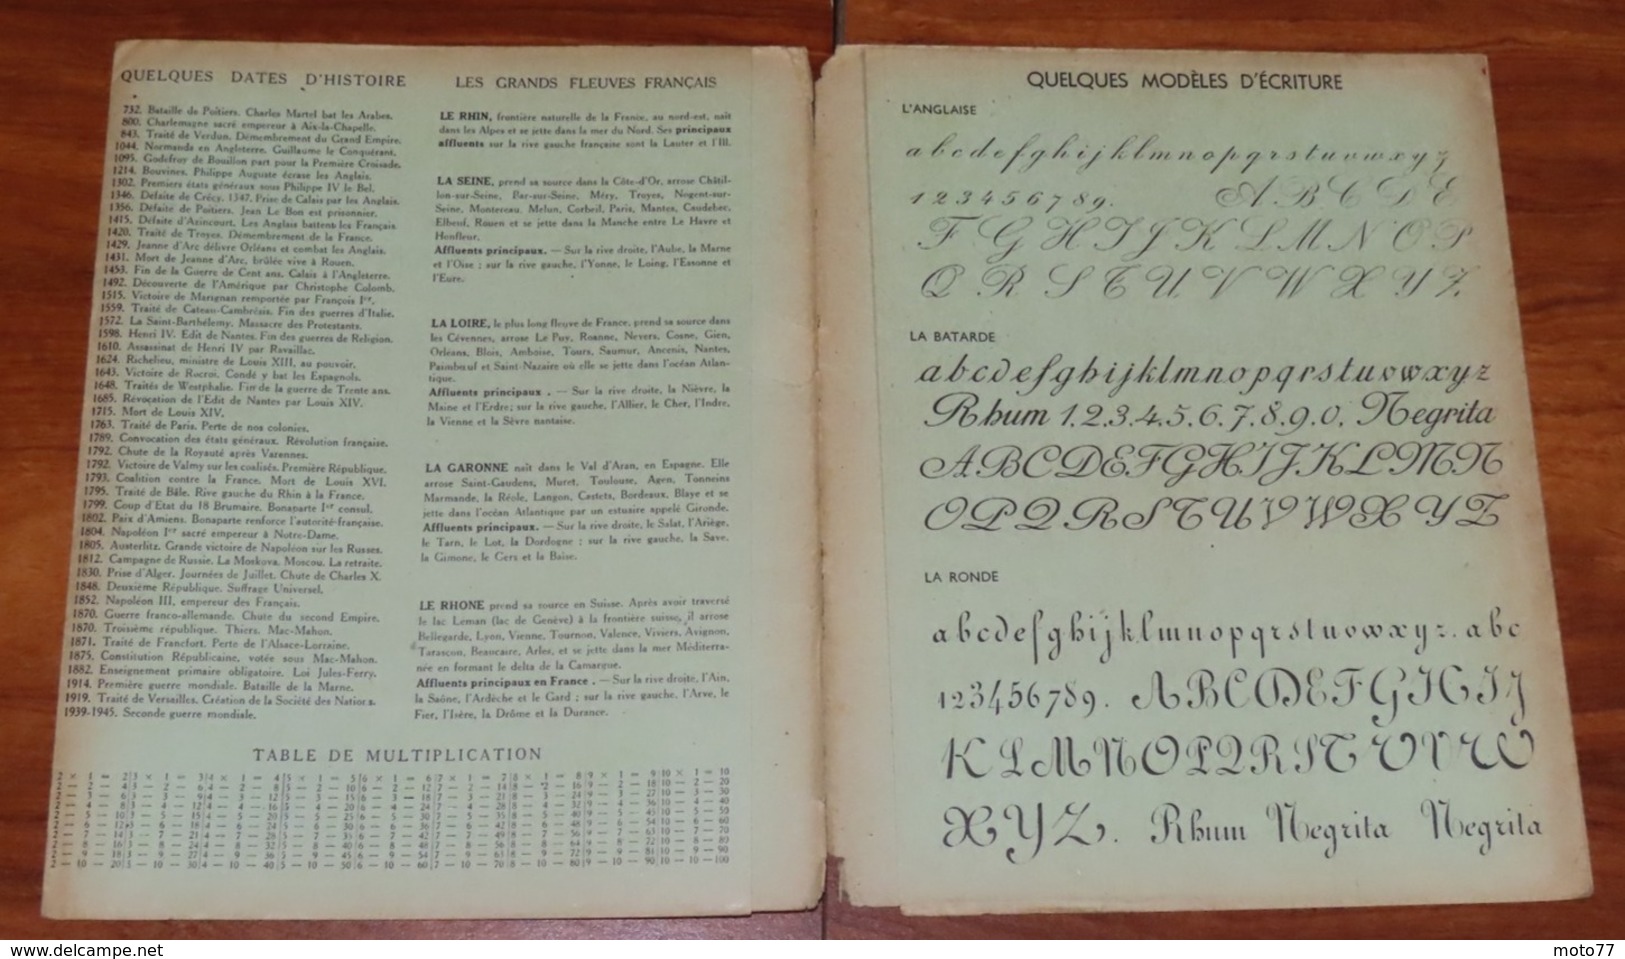 QUELQUES DATES D'HISTOIRE
732. Bataille de Poitiers. Charles Martel bat les Arabes.
800. Charlemagne sacré empereur à Aix-la-Chapelle.
843. Traité de Verdun. Démembrement du Grand Empire.
1044. Normands en Angleterre. Guillaume le Conquérant.
1095. Godefroy de Bouillon part pour la Première Croisade.
1214. Bouvines. Philippe Auguste écrase les Anglais.
1302. Premiers états généraux sous Philippe IV le Bel.
1346. Défaite de Crécy. 1347. Prise de Calais par les Anglais.
1356. Défaite de Poitiers. Jean Le Bon est prisonnier.
1415. Défaite d'Azincourt. Les Anglais battent les Français
1420. Traité de Troyes. Démembrement de la France.
1429. Jeanne d'Arc délivre Orléans et combat les Anglais.
1431. Mort de Jeanne d'Arc, brûlée vive à Rouen.
1453. Fin de la Guerre de Cent ans. Calais à l'Angleterre.
1492. Découverte de l'Amérique par Christophe Colomb.
1515. Victoire de Marignan remportée par François Ier.
1559. Traité de Cateau-Cambrésis. Fin des guerres d'Italie.
1572. La Saint-Barthélemy. Massacre des Protestants.
1598. Henri IV. Edit de Nantes. Fin des guerres de Religion.
1610. Assassinat de Henri IV par Ravaillac.
1624. Richelieu, ministre de Louis XIII, au pouvoir.
1643. Victoire de Rocroi. Condé y bat les Espagnols.
1648. Traités de Westphalie. Fin de la guerre de Trente ans.
1685. Révocation de l'Edit de Nantes par Louis XIV.
1715. Mort de Louis XIV.
1763. Traité de Paris. Perte de nos colonies.
1789. Convocation des états généraux. Révolution française.
1792. Chute de la Royauté après Varennes.
1792. Victoire de Valmy sur les coalisés. Première République.
1793. Coalition contre la France. Mort de Louis XVI.
1795. Traité de Bâle. Rive gauche du Rhin à la France.
1799. Coup d'Etat du 18 Brumaire. Bonaparte Ier consul.
1802. Paix d'Amiens. Bonaparte renforce l'autorité française.
1804. Napoléon Ier sacré empereur à Notre-Dame.
1805. Austerlitz. Grande victoire de Napoléon sur les Russes.
1812. Campagne de Russie. La Moskova. Moscou. La retraite.
1830. Prise d'Alger. Journées de Juillet. Chute de Charles X.
1848. Deuxième République. Suffrage Universel.
1852. Napoléon III, empereur des Français.
1870. Guerre franco-allemande. Chute du second Empire.
1870. Troisième république. Thiers. Mac-Mahon.
1871. Traité de Francfort. Perte de l'Alsace-Lorraine.
1875. Constitution Républicaine, votée sous Mac-Mahon.
1882. Enseignement primaire obligatoire. Loi Jules-Ferry.
1914. Première guerre mondiale. Bataille de la Marne.
1919. Traité de Versailles. Création de la Société des Nations.
1939-1945. Seconde guerre mondiale.
LES GRANDS FLEUVES FRANÇAIS
LE RHIN, frontière naturelle de la France, au nord-est, naît
dans les Alpes et se jette dans la mer du Nord. Ses principaux
affluents sur la rive gauche française sont la Lauter et l'Ill.
LA SEINE, prend sa source dans la Côte-d'Or, arrose Châtil-
lon-sur-Seine, Bar-sur-Seine, Méry, Troyes, Nogent-sur-
Seine, Montereau, Melun, Corbeil, Paris, Mantes, Caudebec,
Elbeuf, Rouen et se jette dans la Manche entre Le Havre et
Honfleur.
Affluents principaux. — Sur la rive droite, l'Aube, la Marne
et l'Oise ; sur la rive gauche, l'Yonne, le Loing, l'Essonne et
l'Eure.
LA LOIRE, le plus long fleuve de France, prend sa source dans
les Cévennes, arrose Le Puy, Roanne, Nevers, Cosne, Gien,
Orléans, Blois, Amboise, Tours, Saumur, Ancenis, Nantes,
Paimbœuf et Saint-Nazaire où elle se jette dans l'océan Atlan-
tique.
Affluents principaux . — Sur la rive droite, la Nièvre, la
Maine et l'Erdre; sur la rive gauche, l'Allier, le Cher, l'Indre,
la Vienne et la Sèvre nantaise.
LA GARONNE naît dans le Val d'Aran, en Espagne. Elle
arrose Saint-Gaudens, Muret, Toulouse, Agen, Tonneins
Marmande, la Réole, Langon, Castets, Bordeaux, Blaye et se
jette dans l'océan Atlantique par un estuaire appelé Gironde.
Affluents principaux. — Sur la rive droite, le Salat, l'Ariège,
le Tarn, le Lot, la Dordogne ; sur la rive gauche, la Save,
la Gimone, le Gers et la Baïse.
LE RHONE prend sa source en Suisse. Après avoir traversé
le lac Leman (lac de Genève) à la frontière suisse, il arrose
Bellegarde, Lyon, Vienne, Tournon, Valence, Viviers, Avignon,
Tarascon, Beaucaire, Arles, et se jette dans la mer Méditerra-
née en formant le delta de la Camargue.
Affluents principaux en France . — Sur la rive droite, l'Ain,
la Saône, l'Ardèche et le Gard ; sur la rive gauche, l'Arve, le
Fier, l'Isère, la Drôme et la Durance.
TABLE DE MULTIPLICATION
2 × 1 = 2|3 × 1 = 3|4 × 1 = 4|5 × 1 = 5|6 × 1 = 6|7 × 1 = 7|8 × 1 = 8|9 × 1 = 9|10 × 1 = 10
2 — 2 — 4|3 — 2 — 6|4 — 2 — 8|5 — 2 — 10|6 — 2 — 12|7 — 2 — 14|8 — 2 — 16|9 — 2 — 18|10 — 2 — 20
2 — 3 — 6|3 — 3 — 9|4 — 3 — 12|5 — 3 — 15|6 — 3 — 18|7 — 3 — 21|8 — 3 — 24|9 — 3 — 27|10 — 3 — 30
2 — 4 — 8|3 — 4 — 12|4 — 4 — 16|5 — 4 — 20|6 — 4 — 24|7 — 4 — 28|8 — 4 — 32|9 — 4 — 36|10 — 4 — 40
2 — 5 — 10|3 — 5 — 15|4 — 5 — 20|5 — 5 — 25|6 — 5 — 30|7 — 5 — 35|8 — 5 — 40|9 — 5 — 45|10 — 5 — 50
2 — 6 — 12|3 — 6 — 18|4 — 6 — 24|5 — 6 — 30|6 — 6 — 36|7 — 6 — 42|8 — 6 — 48|9 — 6 — 54|10 — 6 — 60
2 — 7 — 14|3 — 7 — 21|4 — 7 — 28|5 — 7 — 35|6 — 7 — 42|7 — 7 — 49|8 — 7 — 56|9 — 7 — 63|10 — 7 — 70
2 — 8 — 16|3 — 8 — 24|4 — 8 — 32|5 — 8 — 40|6 — 8 — 48|7 — 8 — 56|8 — 8 — 64|9 — 8 — 72|10 — 8 — 80
2 — 9 — 18|3 — 9 — 27|4 — 9 — 36|5 — 9 — 45|6 — 9 — 54|7 — 9 — 63|8 — 9 — 72|9 — 9 — 81|10 — 9 — 90
2 — 10 — 20|3 — 10 — 30|4 — 10 — 40|5 — 10 — 50|6 — 10 — 60|7 — 10 — 70|8 — 10 — 80|9 — 10 — 90|10 — 10 — 100
QUELQUES MODÈLES D'ÉCRITURE
L'ANGLAISE
a b c d e f g h i j k l m n o p q r s t u v w x y z
1 2 3 4 5 6 7 8 9. A B C D E
F G H I J K L M N O P
Q R S T U V W X Y Z
LA BATARDE
a b c d e f g h i j k l m n o p q r s t u v w x y z
Rhum 1.2.3.4.5.6.7.8.9.0. Negrita
A B C D E F G H I J K L M N
O P Q R S T U V W X Y Z
LA RONDE
a b c d e f g h i j k l m n o p q r s t u v w x y z . a b c
1 2 3 4 5 6 7 8 9 . A B C D E F G H I J
K L M N O P Q R S T U V W
X Y Z . Rhum Negrita Negrita
www.delcampe.net
moto77